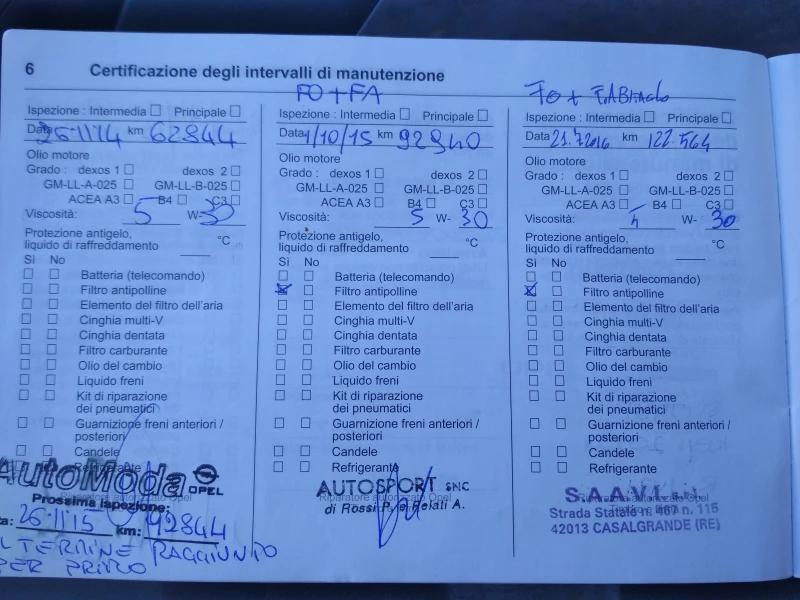 6 Certificazione degli intervalli di manutenzione
Ispezione : Intermedia Principale
Data 26·11·14 km 62844
Olio motore
Grado : dexos 1 dexos 2
GM-LL-A-025 GM-LL-B-025
ACEA A3 B4 C3
Viscosità: 5 W- 30
Protezione antigelo,
liquido di raffreddamento °C
Sì No
Batteria (telecomando)
Filtro antipolline
Elemento del filtro dell'aria
Cinghia multi-V
Cinghia dentata
Filtro carburante
Olio del cambio
Liquido freni
Kit di riparazione
dei pneumatici
Guarnizione freni anteriori /
posteriori
Candele
Refrigerante
AutoModa OPEL
Riparatore autorizzato Opel
Prossima ispezione:
26·11·15 km: 92844
TERMINE RAGGIUNTO
PER PRIMO
FO + FA
Ispezione : Intermedia Principale
Data 1/10/15 km 92840
Olio motore
Grado : dexos 1 dexos 2
GM-LL-A-025 GM-LL-B-025
ACEA A3 B4 C3
Viscosità: 5 W- 30
Protezione antigelo,
liquido di raffreddamento °C
Sì No
Batteria (telecomando)
Filtro antipolline
Elemento del filtro dell'aria
Cinghia multi-V
Cinghia dentata
Filtro carburante
Olio del cambio
Liquido freni
Kit di riparazione
dei pneumatici
Guarnizione freni anteriori /
posteriori
Candele
Refrigerante
AUTOSPORT SNC
Riparatore autorizzato Opel
di Rossi P. e Relati A.
FO +
Ispezione : Intermedia Principale
Data 21.7.2016 km 122.564
Olio motore
Grado : dexos 1 dexos 2
GM-LL-A-025 GM-LL-B-025
ACEA A3 B4 C3
Viscosità: 5 W- 30
Protezione antigelo,
liquido di raffreddamento °C
Sì No
Batteria (telecomando)
Filtro antipolline
Elemento del filtro dell'aria
Cinghia multi-V
Cinghia dentata
Filtro carburante
Olio del cambio
Liquido freni
Kit di riparazione
dei pneumatici
Guarnizione freni anteriori /
posteriori
Candele
Refrigerante
S.A.A.V.I.
Riparatore autorizzato Opel
Strada Statale n. 467 n. 115
42013 CASALGRANDE (RE)